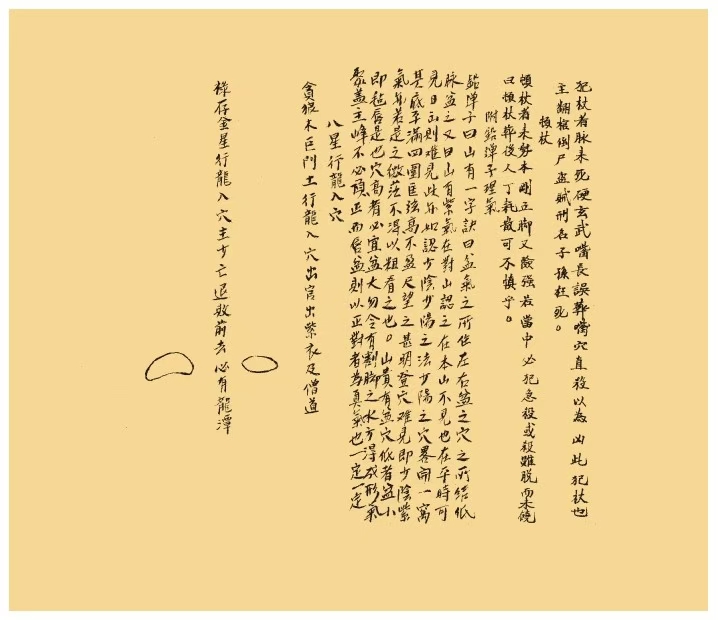 犯杖者脉未死硬玄武嘴長誤葬嘴穴直殺以為凶此犯杖也
主翻棺倒尸盗賊刑名子孫枉死。
頓杖
頓杖者未势本剛正脚又險强若當中必犯急殺或殺雖脱而未饒
曰頓杖葬後人丁耗散可不慎乎。
附鉛彈子理氣
鉛彈子曰山有一字訣曰盆氣之所住左右盆之穴之所结低
脉盆之又曰山有紫氣在對山認之在本山不見也在平時可
見日出則难見此亦如認少陰少陽之法少陽之穴畧開一窩
其底平滿四圍𦣞弦高不盈尺望之甚明登穴难見即少陰紫
氣亦若是之微茫不得以粗看之也。山貴有盆穴低者盆小
即毡唇是也穴高者必宜盆大勿令有割脚之水方得成形氣
聚盖主峰不必頂正而唇盆則以正對者為真氣也一定一定
八星行龍入穴
貪狼木巨門土行龍入穴出官出紫衣及僧道
祿存金星行龍入穴主少亡退敗前去必有龍潭